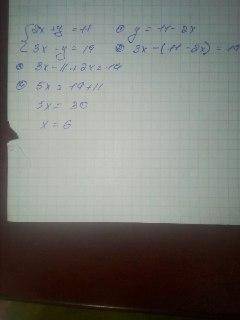 {2x + y = 11 ① y = 11 - 2x
{3x - y = 19 ② 3x - (11 - 2x) = 19
③ 3x - 11 + 2x = 19
④ 5x = 19 + 11
5x = 30
x = 6